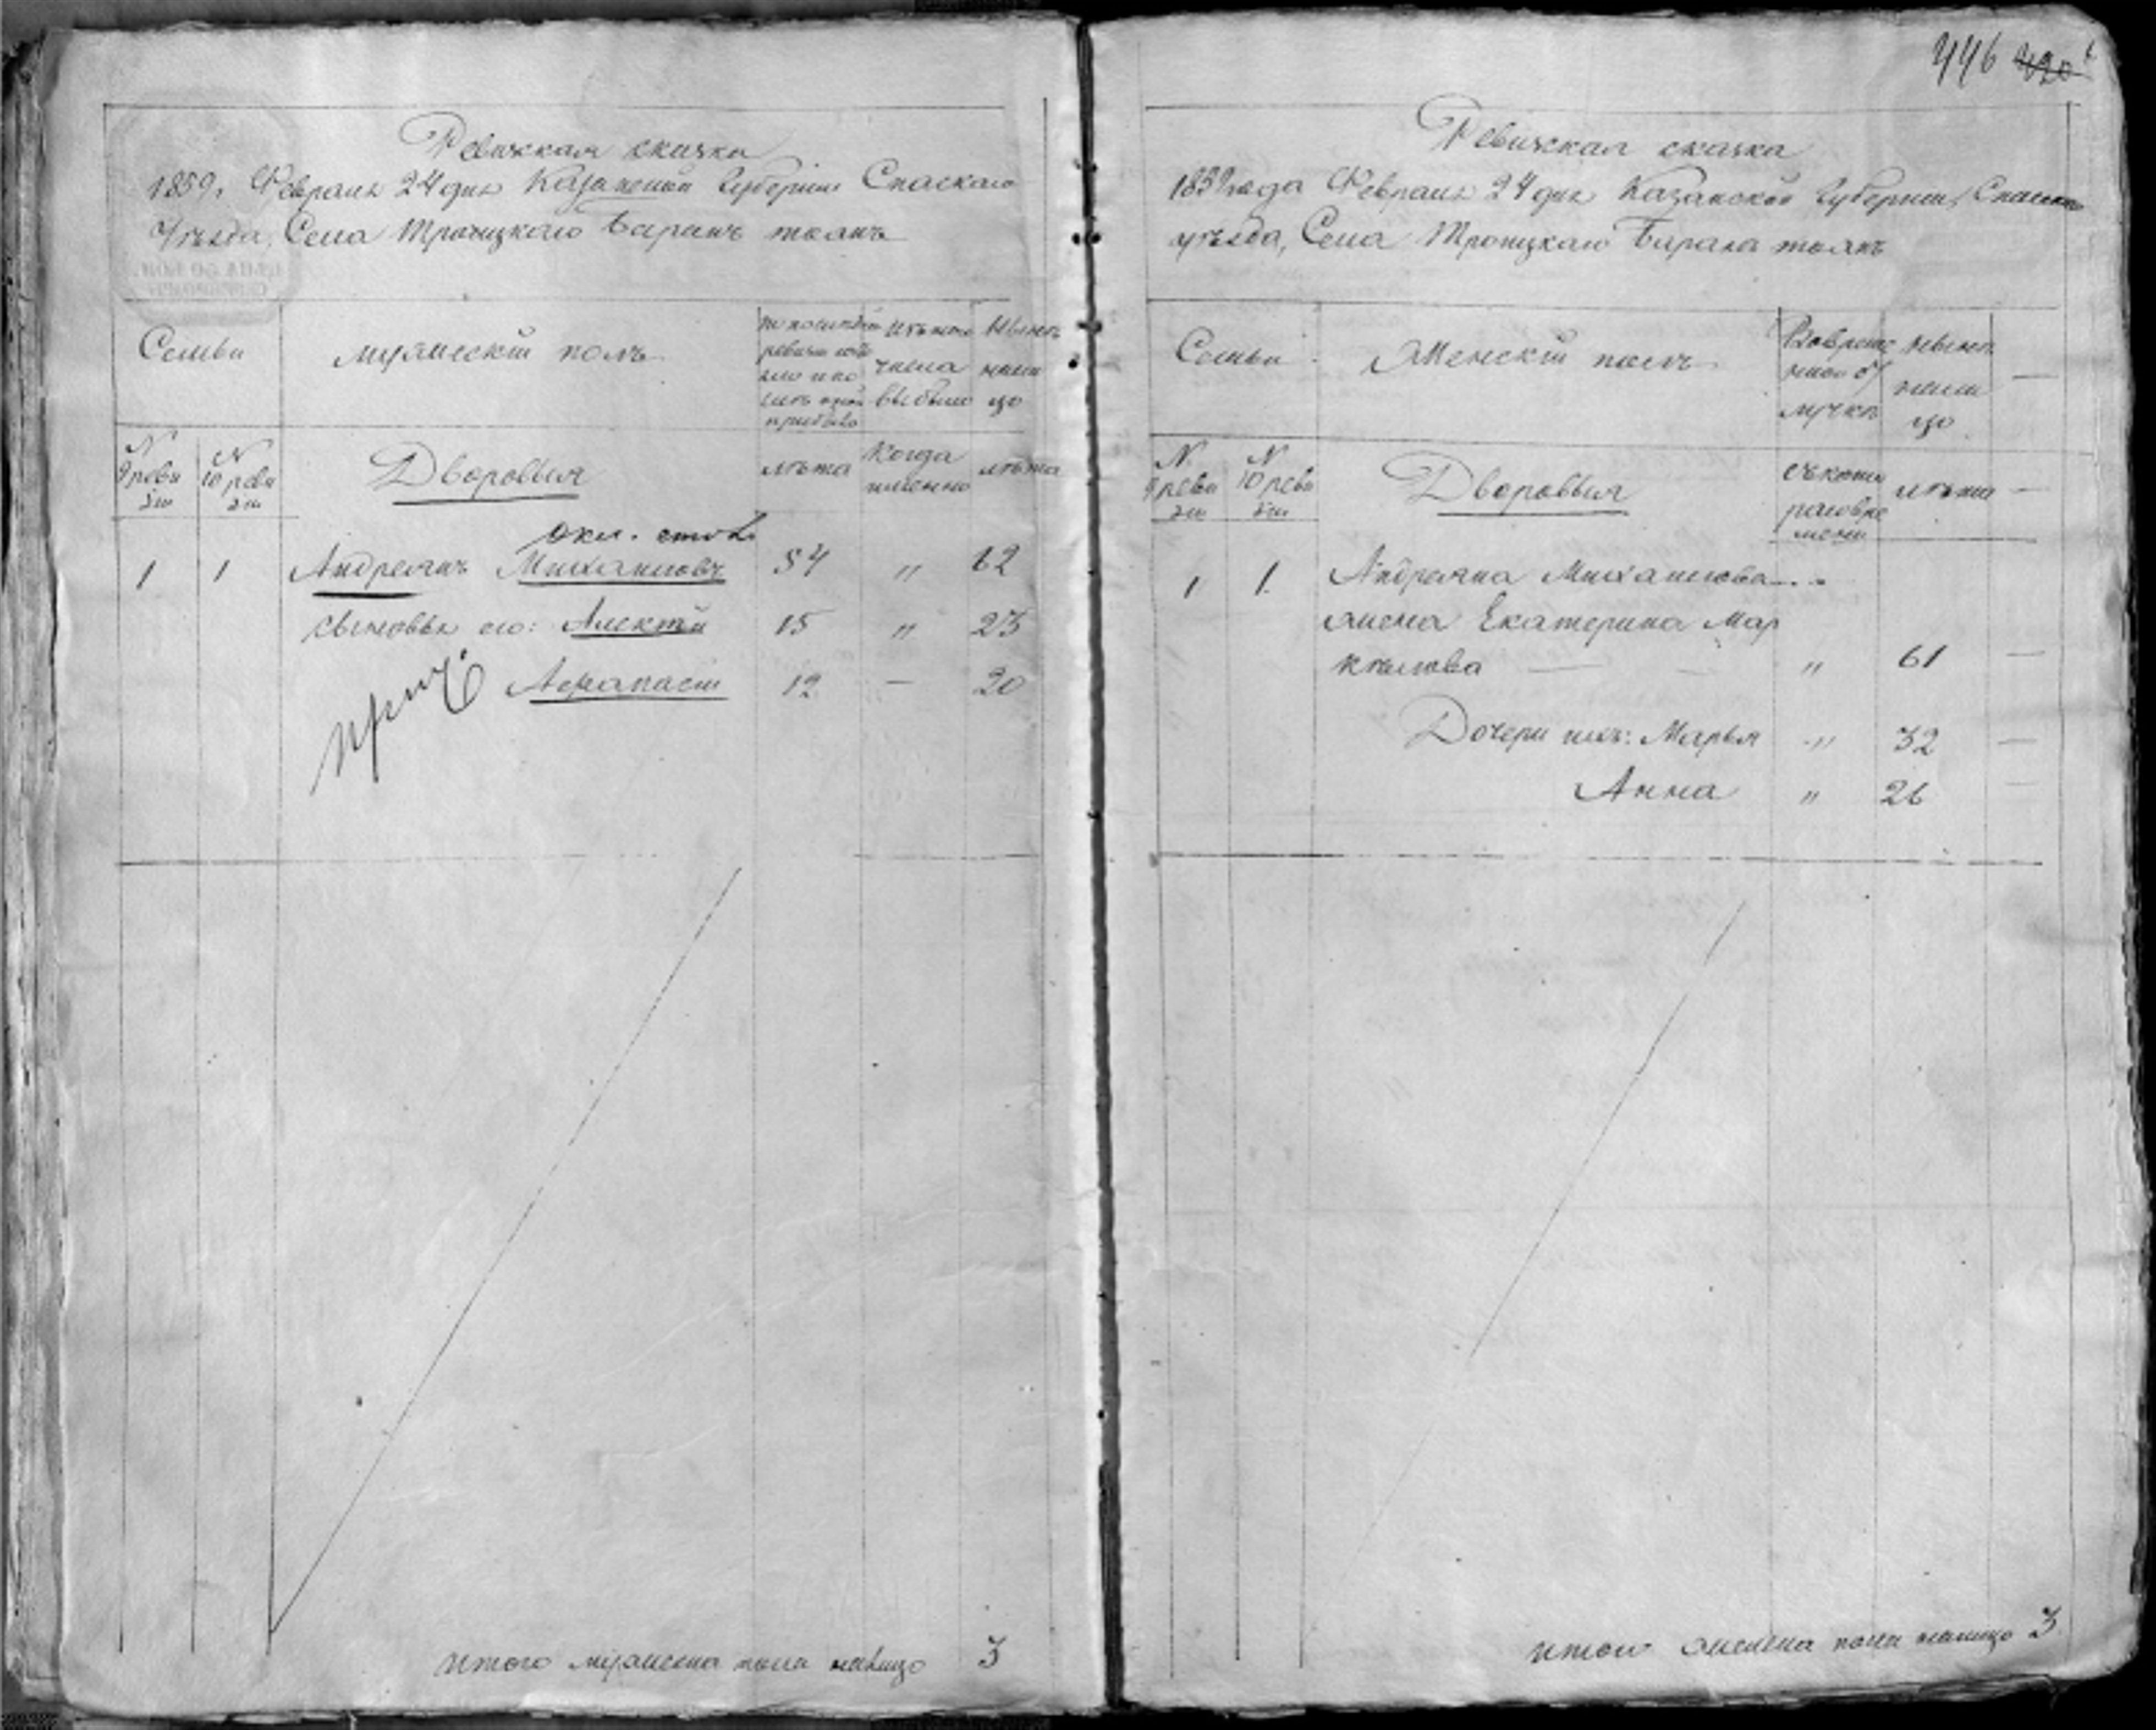 Ревижская сказка
1859г. Февраля 24 дня Казанской Губернии Спаскаго
Уѣзда, Села Троицкаго Баранъ тожъ
Семьи
мужескій полъ
по послѣдней ревизіи состояло и послѣ оной прибыло
Изъ того числа выбыло
Нынѣ на лицо
N 9 ревизіи
N 10 ревизіи
Дворовыя
лѣта
Когда именно
лѣта
1 1 Андреянъ Михаиловъ 54 " 62
сыновья его: Алексѣй 15 " 23
Афанасій 12 — 20
Итого мужеска пола налицо 3
446 420
Ревижская сказка
1859 года Февраля 24 дня Казанской Губерніи, Спаскаго
уѣзда, Села Троицкаго Барана тожъ
Семьи
Женскій полъ
Во временной отлучкѣ
Нынѣ на лицо
N 9 ревизіи
N 10 ревизіи
Дворовыя
съ котораго времени
лѣта
1 1 Андреяна Михаилова
жена Екатерина Мар
кѣлова " 61
Дочери ихъ: Марья " 32
Анна " 26
Итого женска пола налицо 3